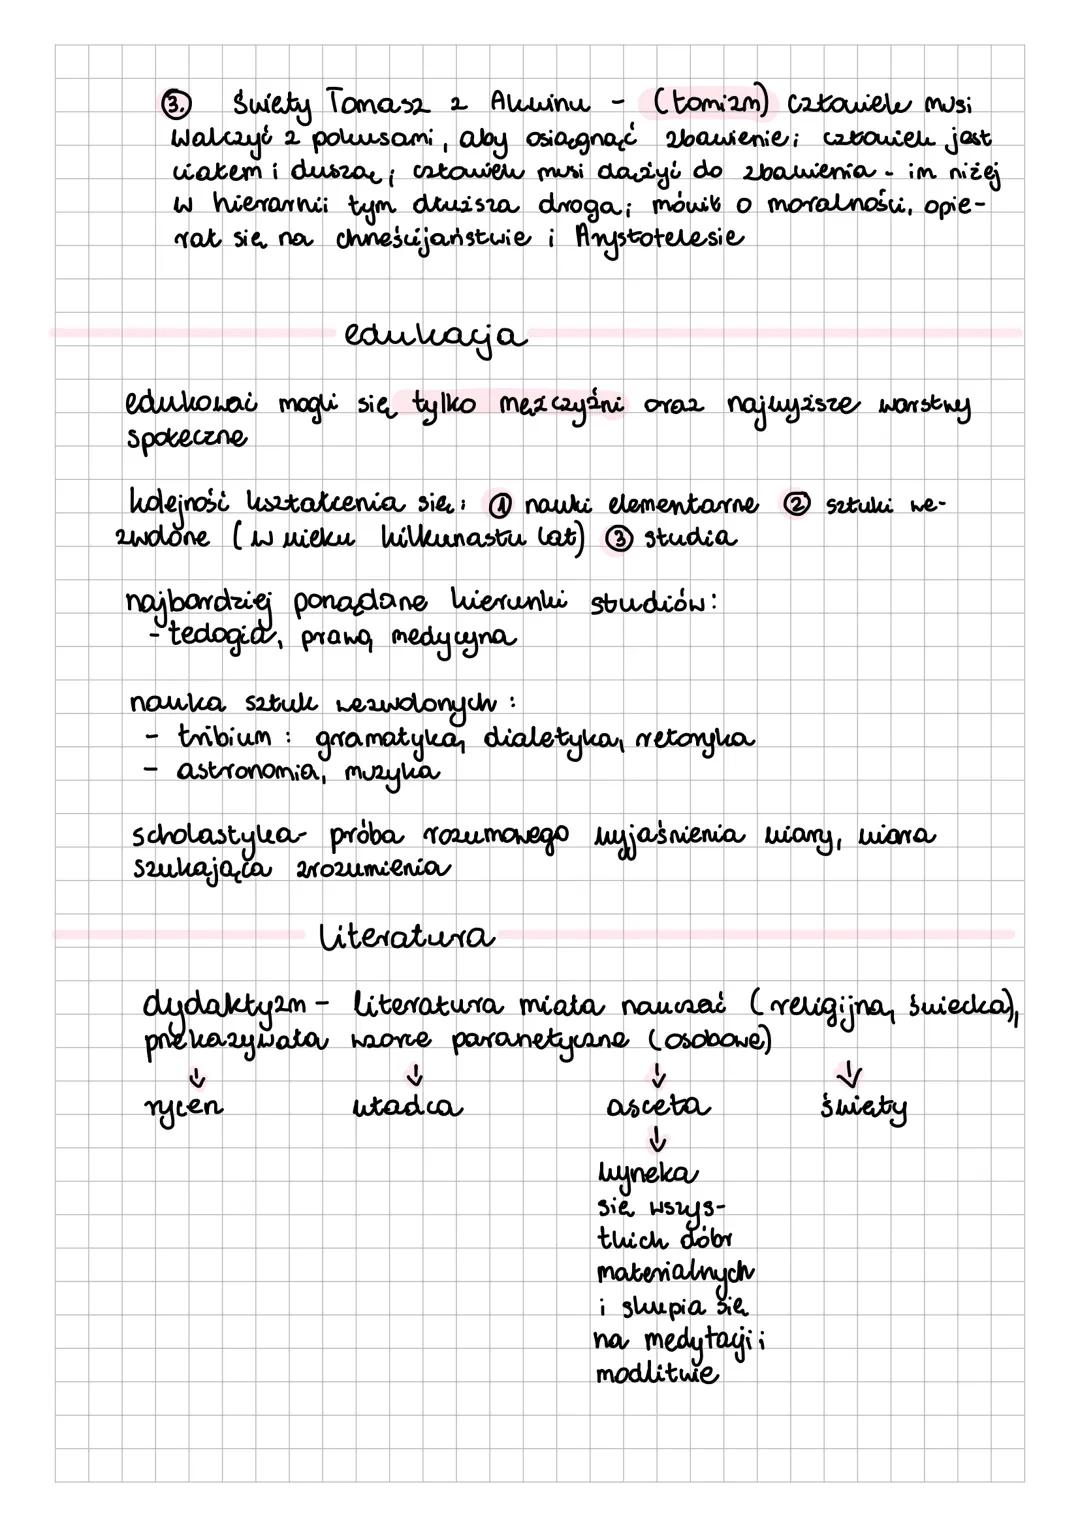 3. Święty Tomasz z Akwinu - (tomizm) człowiek musi
walczyć z pokusami, aby osiągnąć zbawienie; człowiek jest
ciałem i duszą; człowiek musi dążyć do zbawienia - im niżej
w hierarchii tym dłuższa droga; mówił o moralności, opie-
rał się na chrześcijaństwie i Arystotelesie
edukacja
edukować mogli się tylko mężczyźni oraz najwyższe warstwy
społeczne
kolejność kształcenia się: ① nauki elementarne ② sztuki we-
zwolone (w wieku kilkunastu lat) ③ studia
najbardziej porządane kierunki studiów:
- teologia, prawo, medycyna
nauka sztuk wezwolonych:
- tribium: gramatyka, dialetyka, retoryka
- astronomia, muzyka
scholastyka - próba rozumowego wyjaśnienia wiary, wiara
szukająca zrozumienia
literatura
dydaktyzm - literatura miała nauczać (religijna, świecka),
przekazywała wzorce parenetyczne (osobowe)
↓ ↓ ↓ ↓
rycerz władca asceta święty
↓
wyrzeka
się wszys-
tkich dóbr
materialnych
i skupia się
na medytacji i
modlitwie